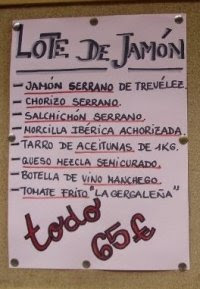 LOTE DE JAMÓN
- JAMÓN SERRANO DE TREVÉLEZ.
- CHORIZO SERRANO.
- SALCHICHÓN SERRANO.
- MORCILLA IBÉRICA ACHORIZADA.
- TARRO DE ACEITUNAS DE 1KG.
- QUESO MEZCLA SEMICURADO.
- BOTELLA DE VINO MANCHEGO.
- TOMATE FRITO "LA GERGALEÑA"
todo
65€